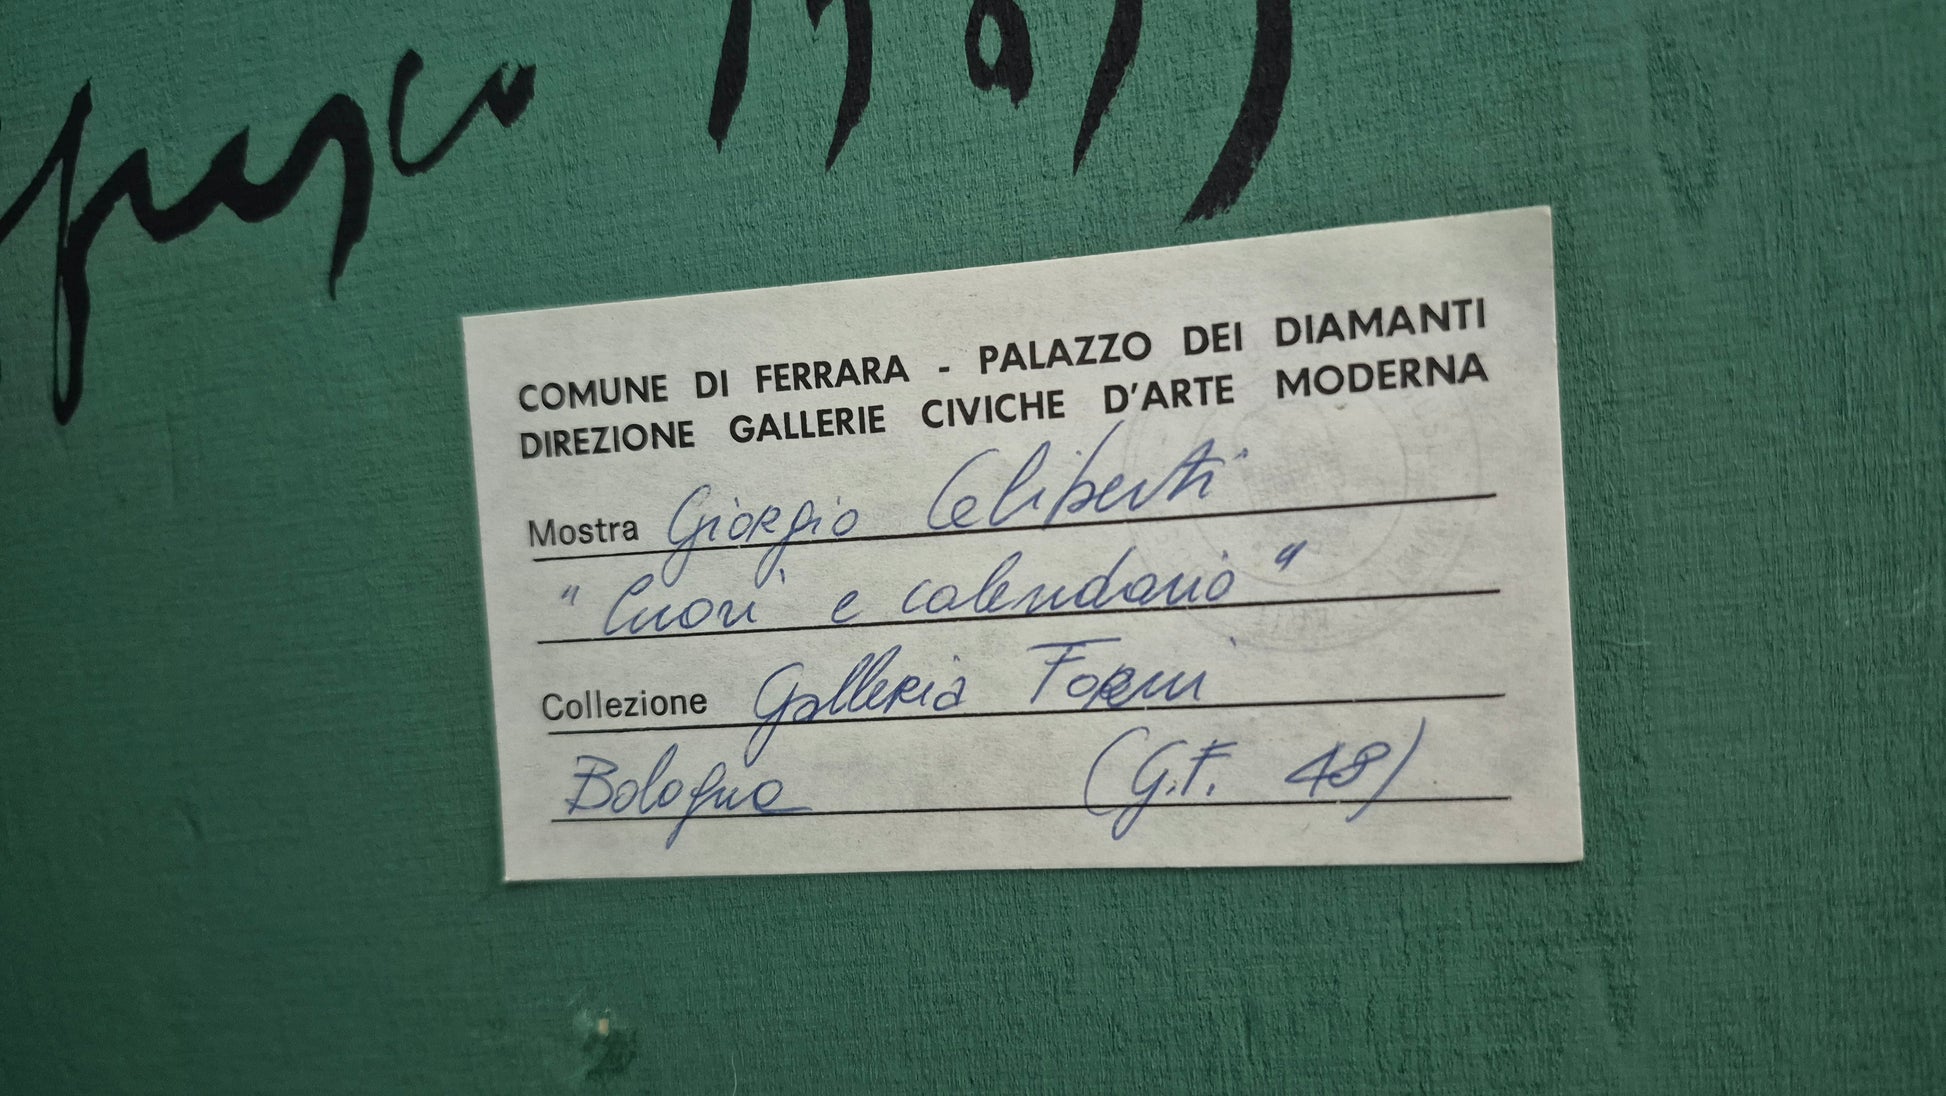 fresco
COMUNE DI FERRARA - PALAZZO DEI DIAMANTI
DIREZIONE GALLERIE CIVICHE D'ARTE MODERNA
Mostra Giorgio Celiberti
"Cuori e calendario"
Collezione Galleria Forni
Bologna (G.F. 48)